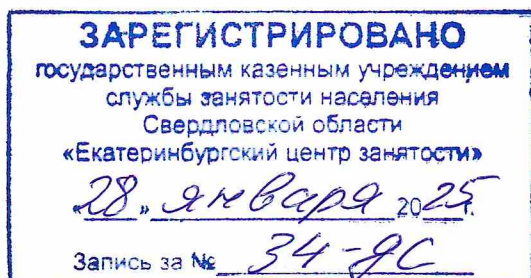 ЗАРЕГИСТРИРОВАНО
государственным казенным учреждением
службы занятости населения
Свердловской области
«Екатеринбургский центр занятости»
«28» января 2025г.
Запись за № 34-ДС